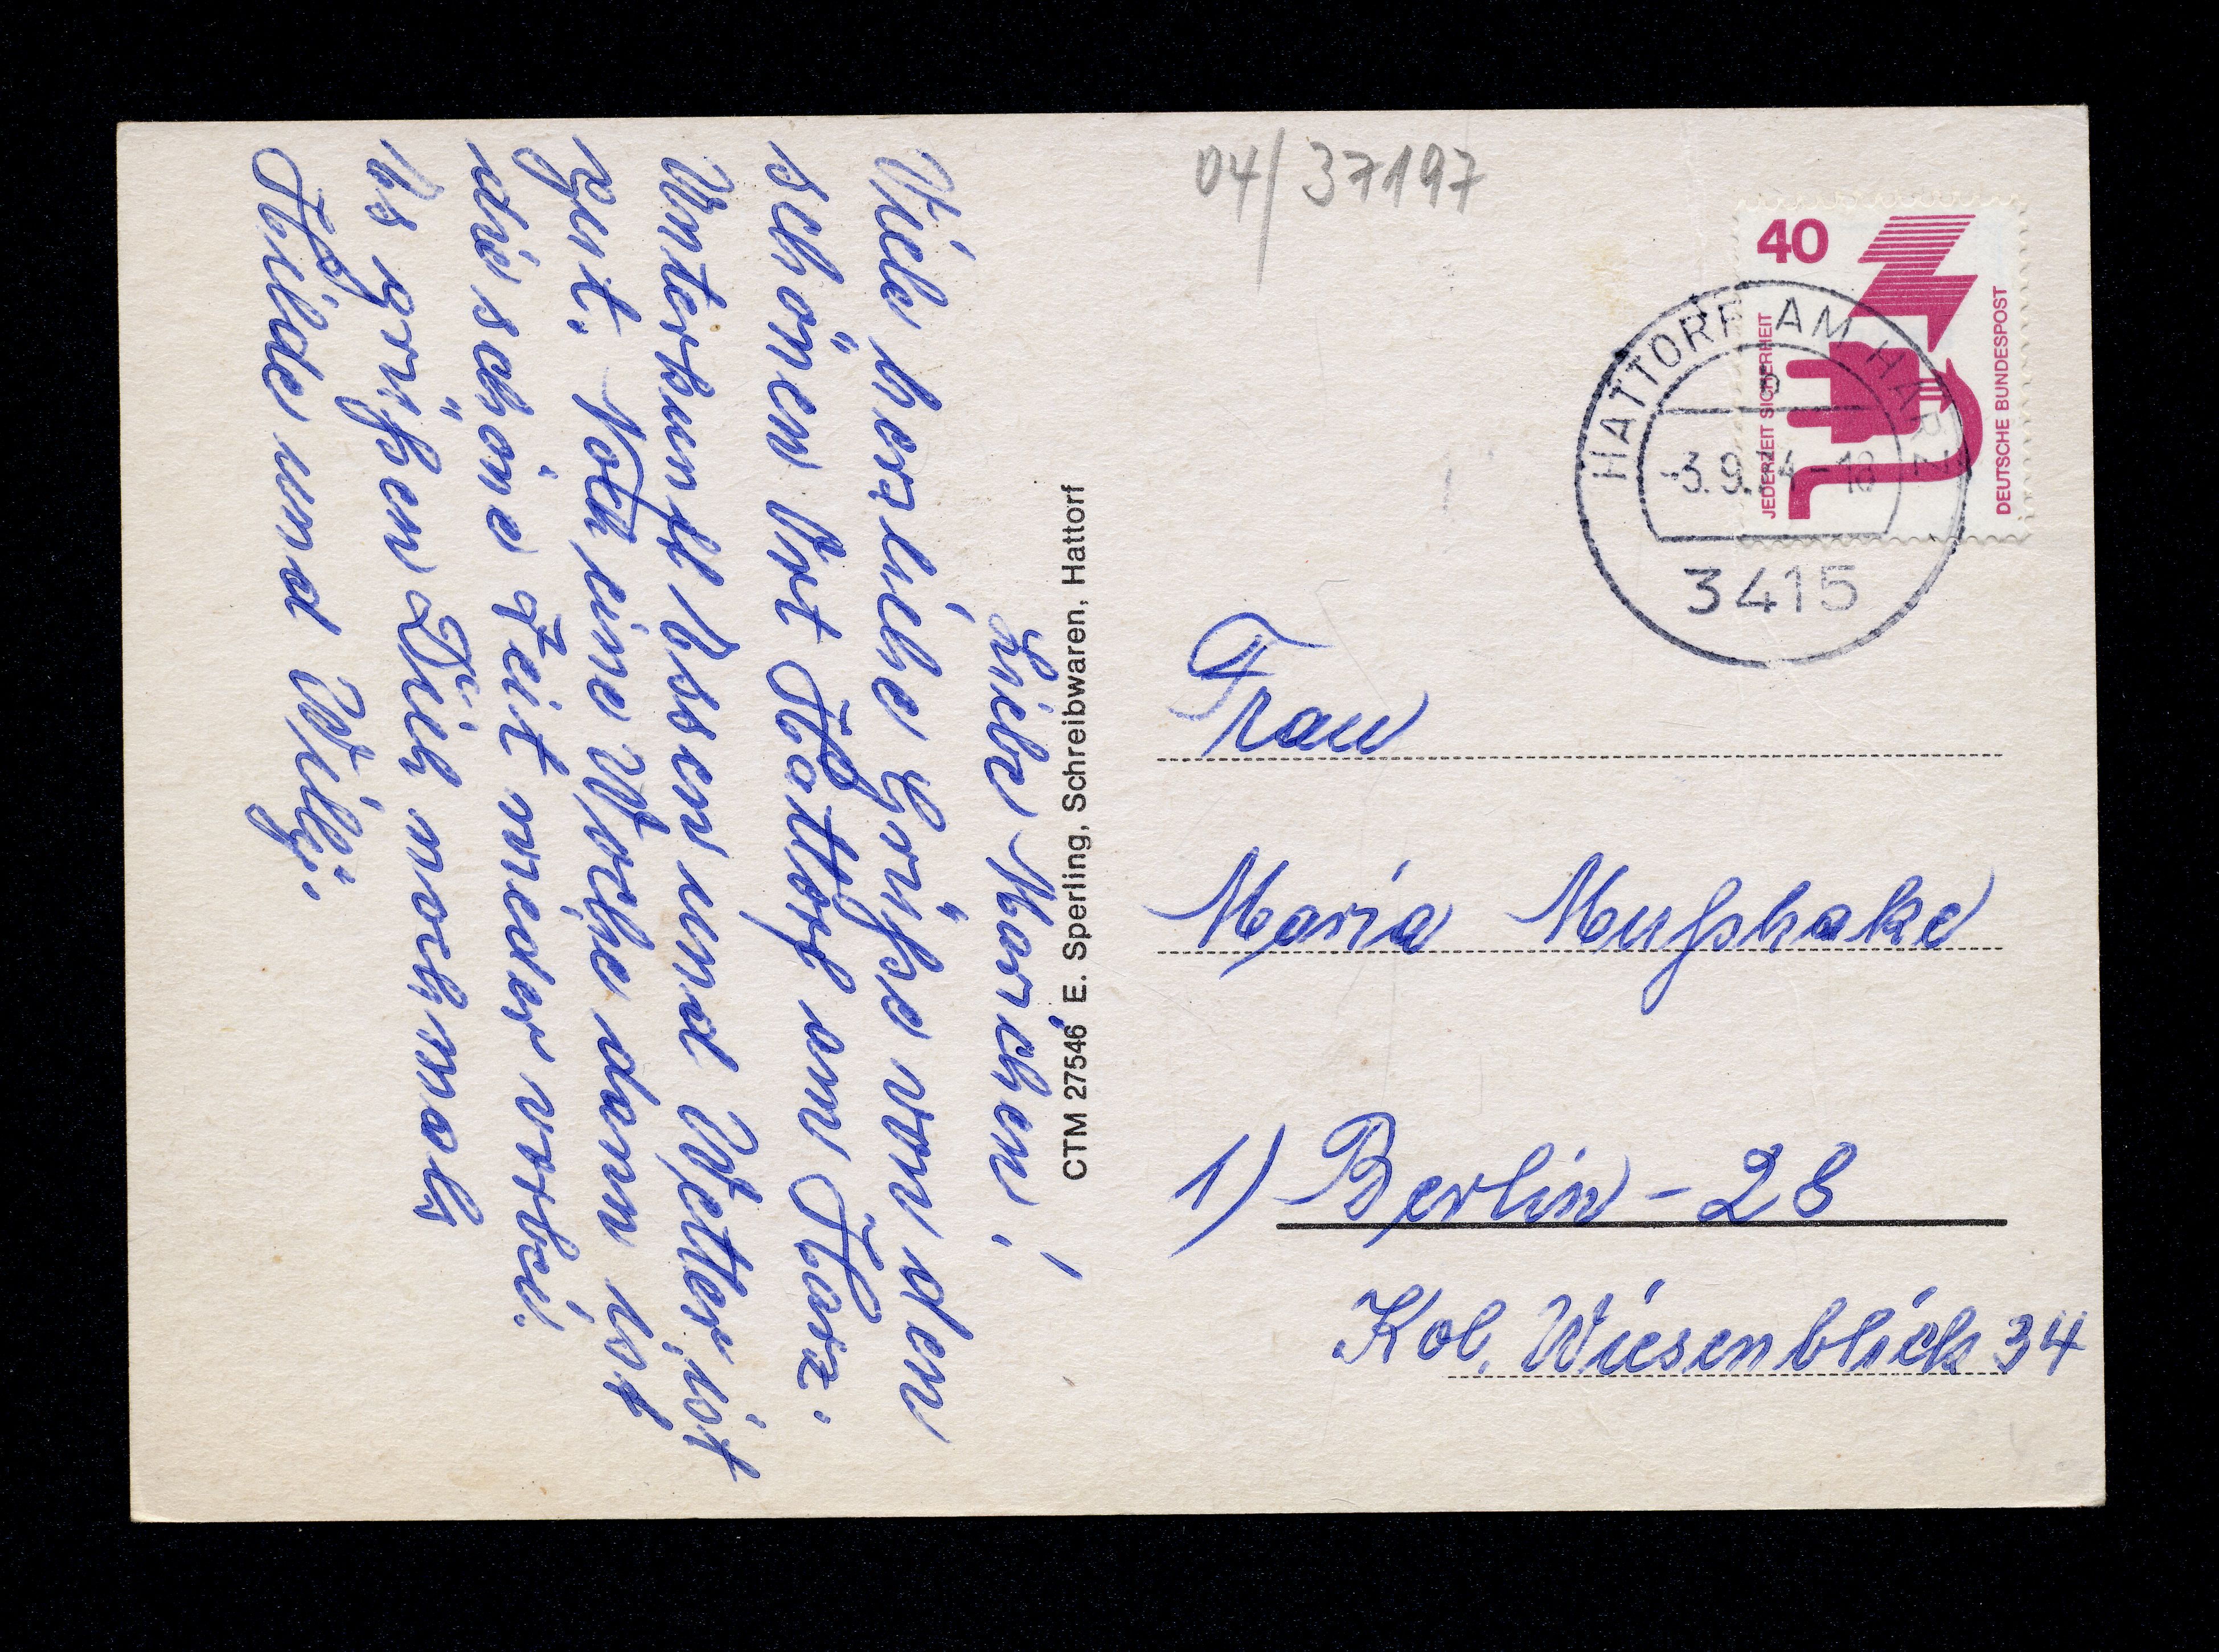 Liebe Marichen!
Viele herzliche Grüße von den
schönen Ort Hattorf am Harz.
Unterkunft Essen und Wetter ist
gut. Noch eine Woche dann ist
die schöne Zeit wieder vorbei.
Es grüßen Dich nochmals
Hilde und Willi.
CTM 27546 E. Sperling, Schreibwaren, Hattorf
04/37197
40
JEDERZEIT SICHERHEIT
DEUTSCHE BUNDESPOST
HATTORF AM HARZ
-3.9.74-18
3415
Frau
Maria Mußhake
1) Berlin-28
Kol. Wiesenblick 34